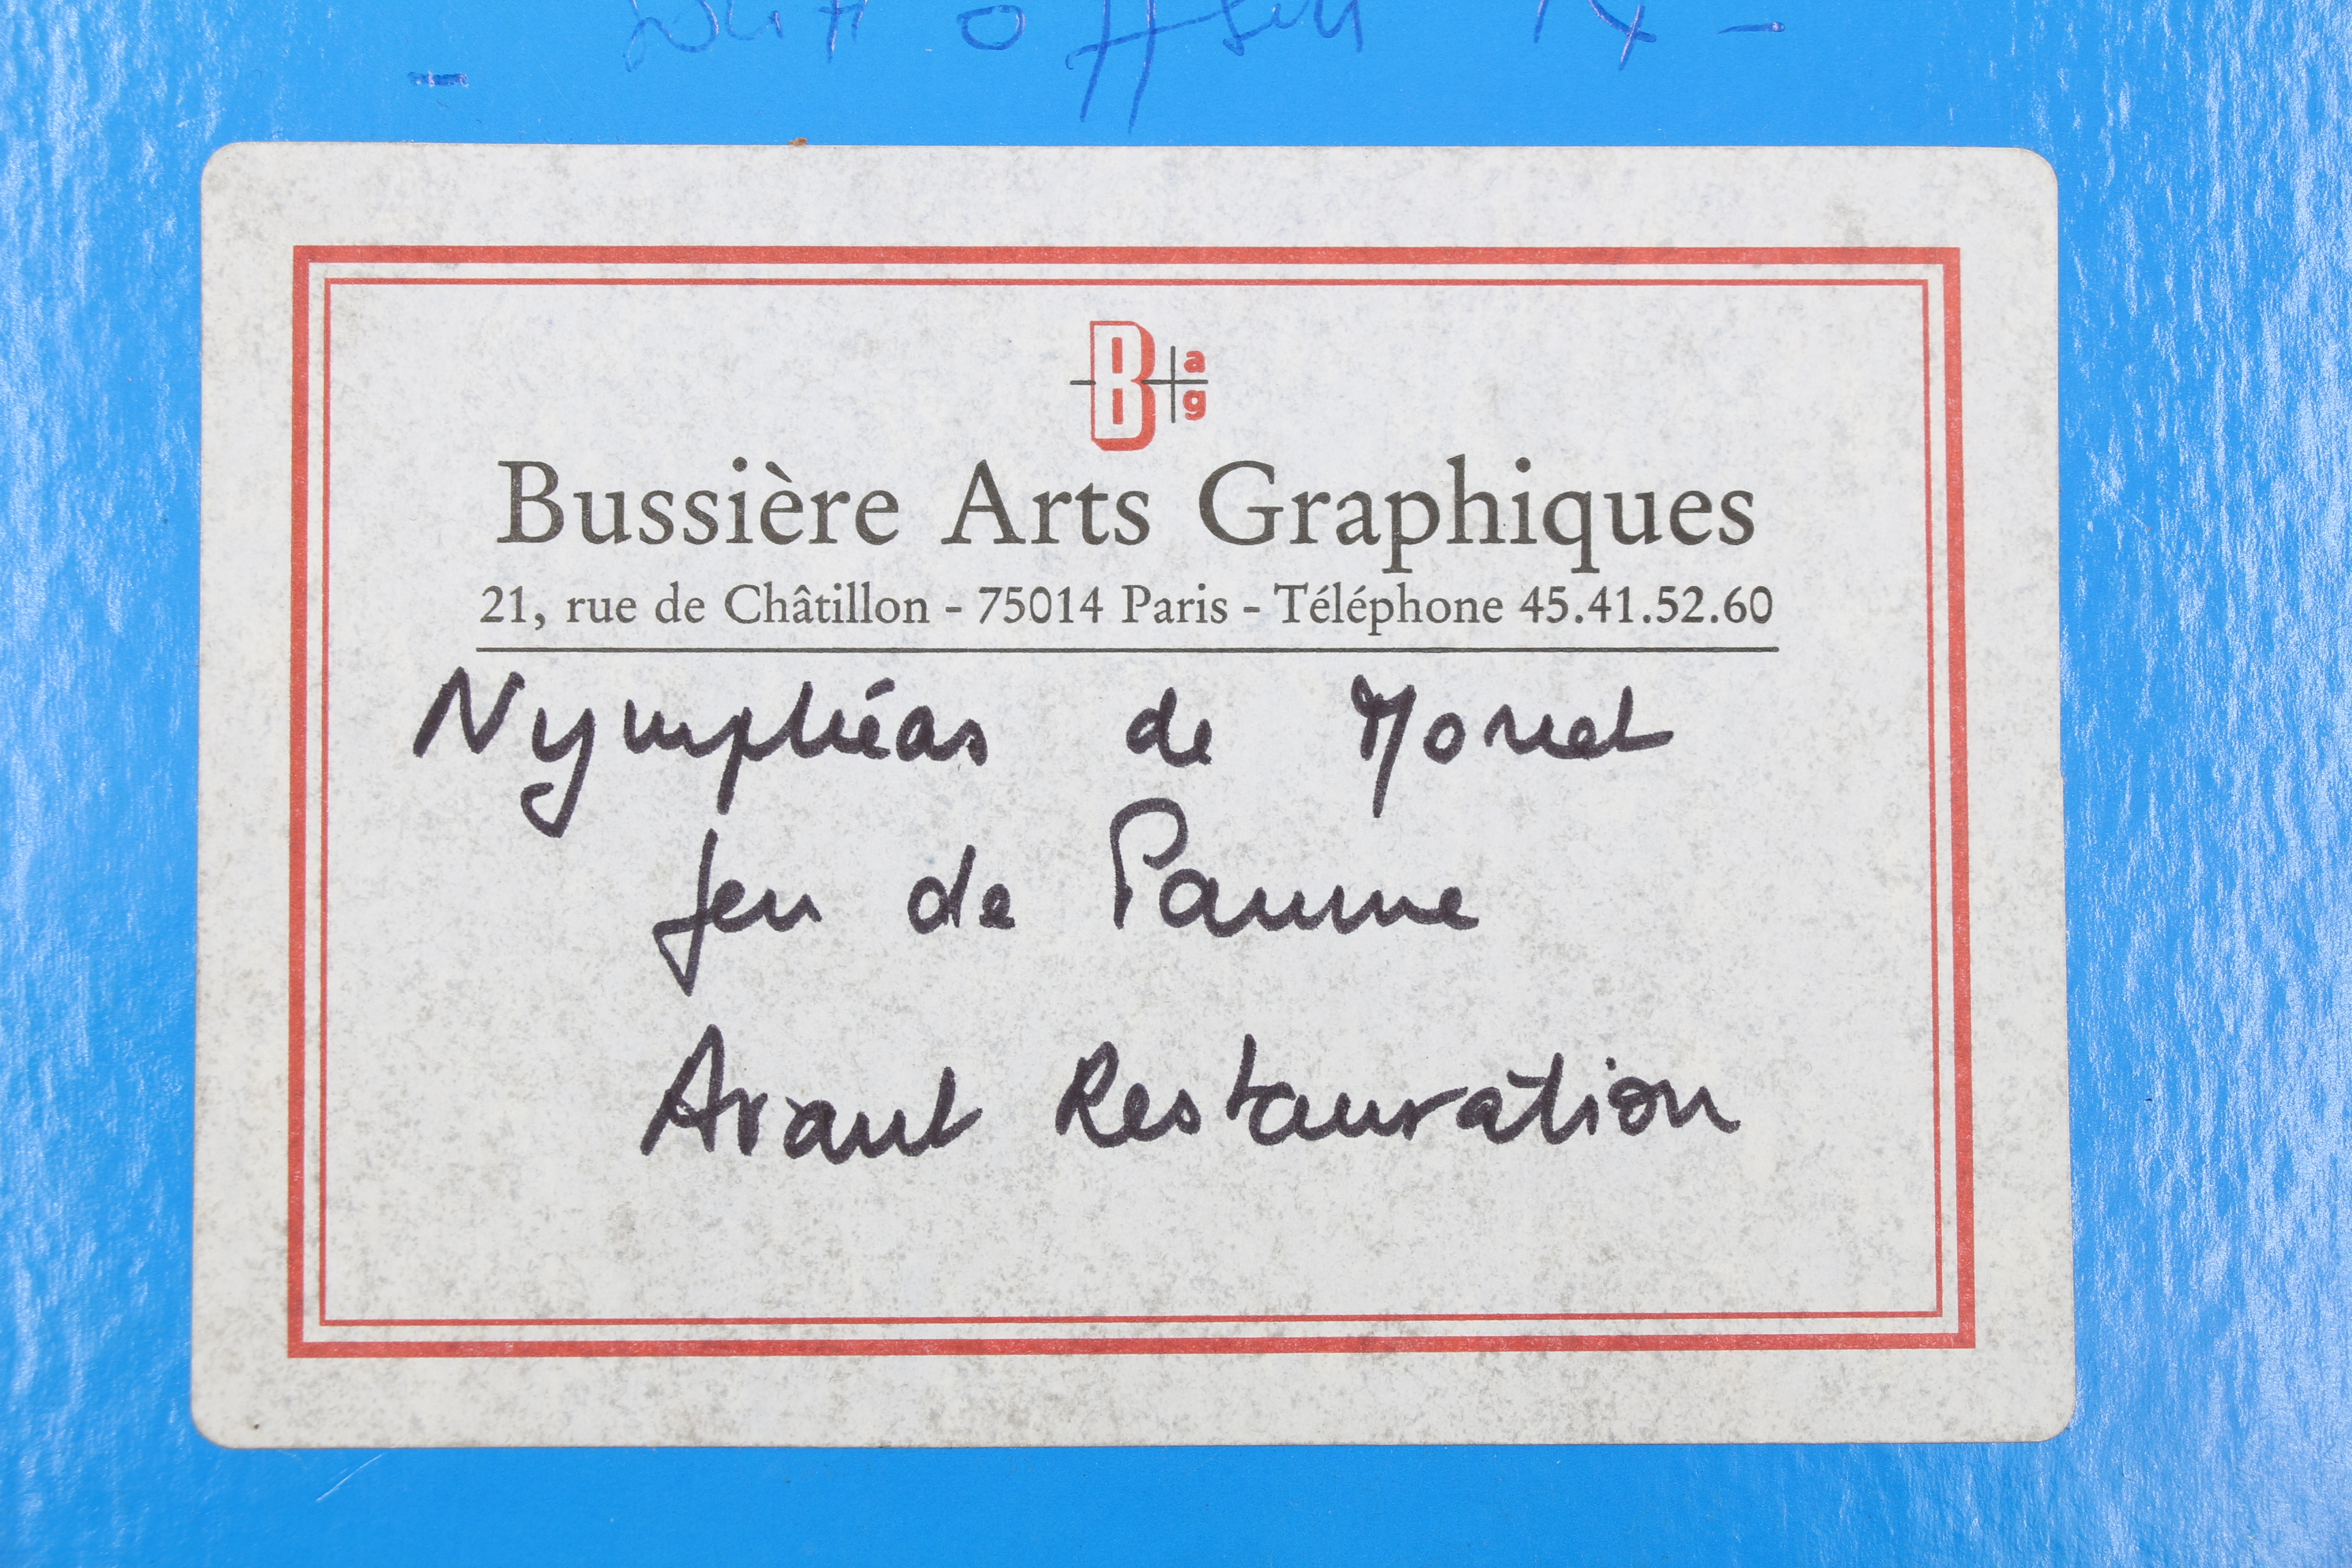 B a
g
Bussière Arts Graphiques
21, rue de Châtillon - 75014 Paris - Téléphone 45.41.52.60
Nymphéas de Monet
Jeu de Paume
Avant Restauration